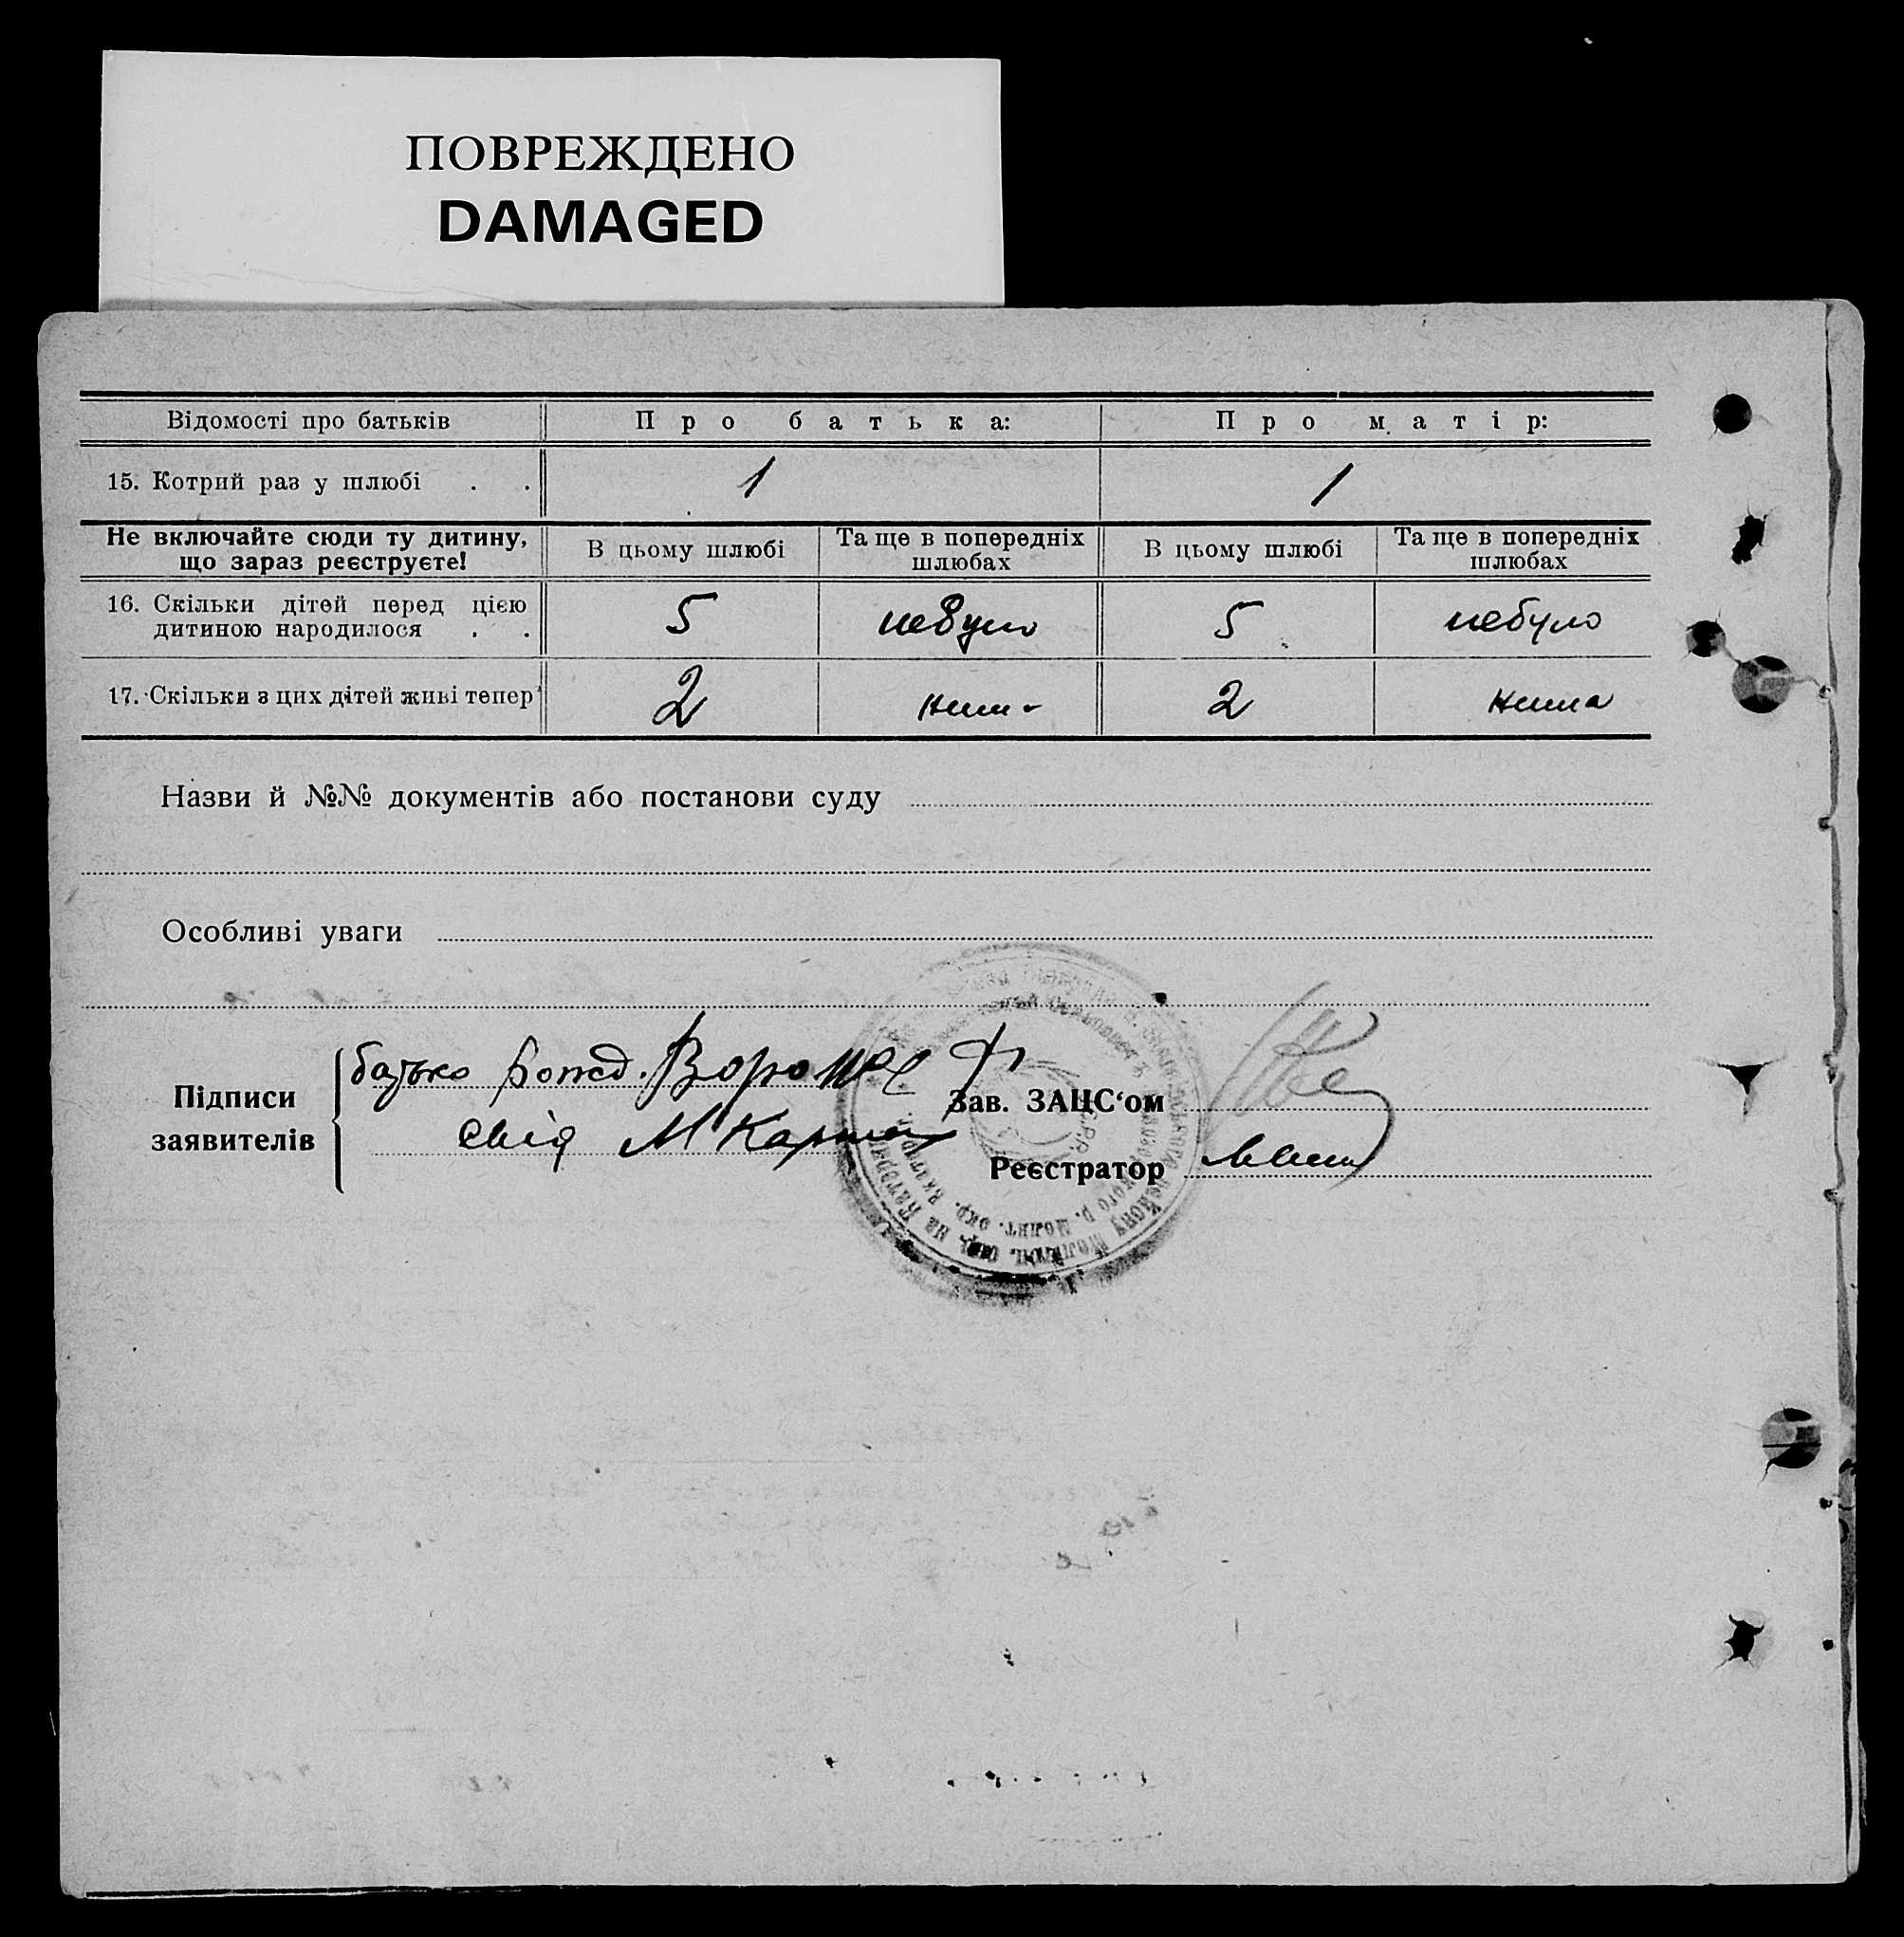 ПОВРЕЖДЕНО
DAMAGED
Відомості про батьків Про батька: Про матір:
15. Котрий раз у шлюбі . . 1 1
Не включайте сюди ту дитину, що зараз реєструєте! В цьому шлюбі Та ще в попередніх шлюбах В цьому шлюбі Та ще в попередніх шлюбах
16. Скільки дітей перед цією дитиною народилося . . 5 небуло 5 небуло
17. Скільки з цих дітей живі тепер 2 2 нима
Назви й №№ документів або постанови суду
Особливі уваги
Підписи заявителів
батько
свід
Зав. ЗАЦС‘ом
Реєстратор